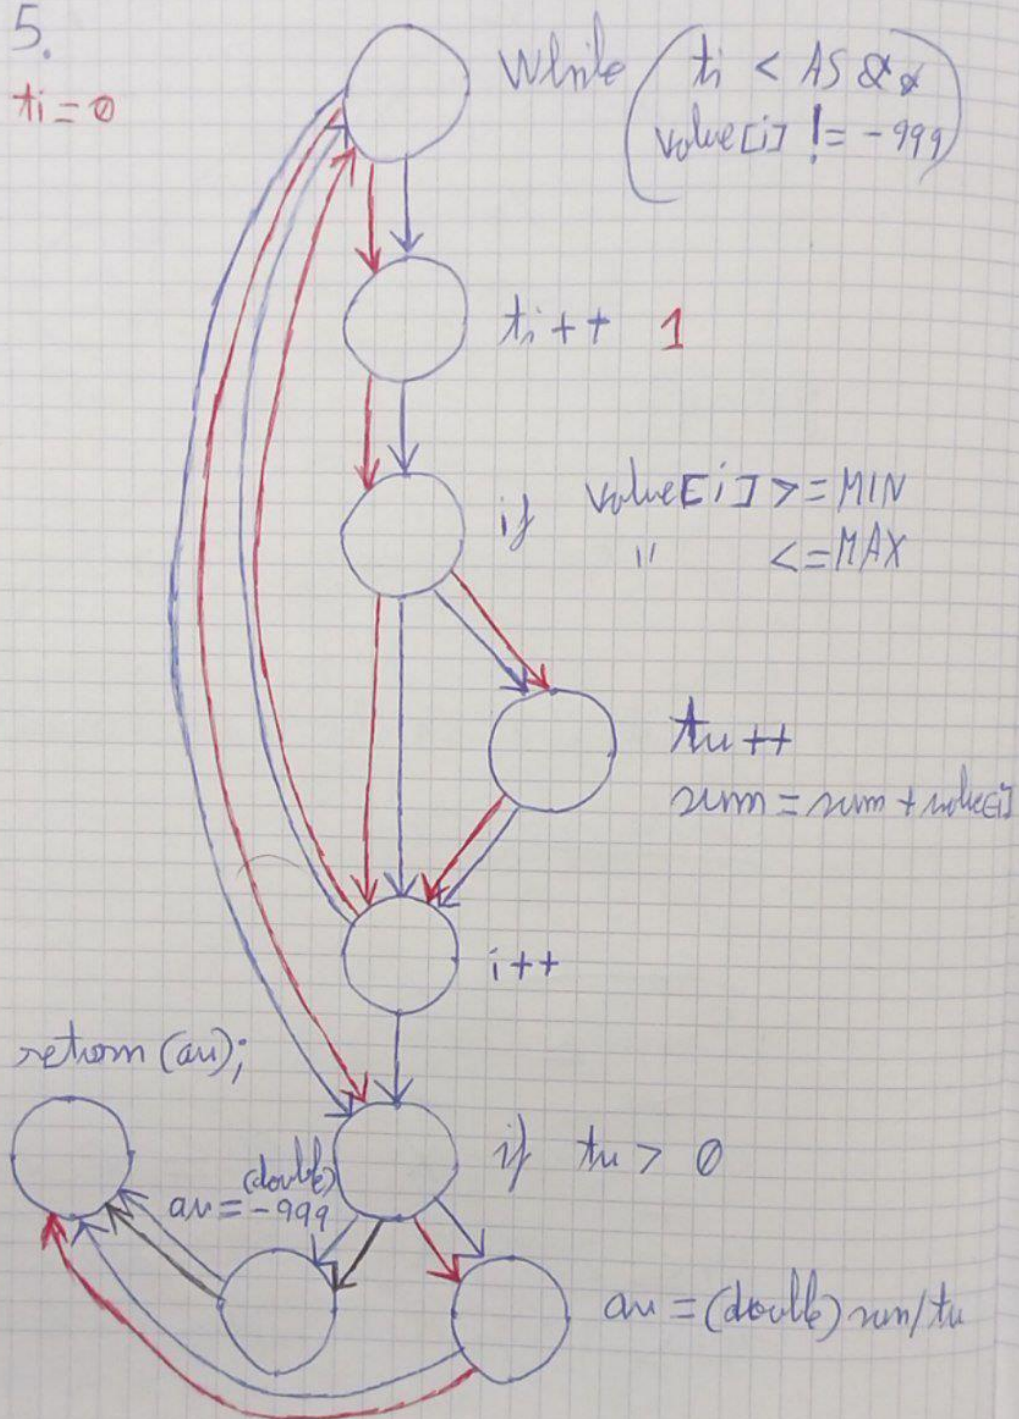 5.
ti = 0
While ( ti < AS &&
value[i] != -999 )
ti++ 1
if value[i] >= MIN
" <= MAX
tu++
sum = sum + value[i]
i++
return (au);
if tu > 0
(double)
au = -999
au = (double) sum/tu